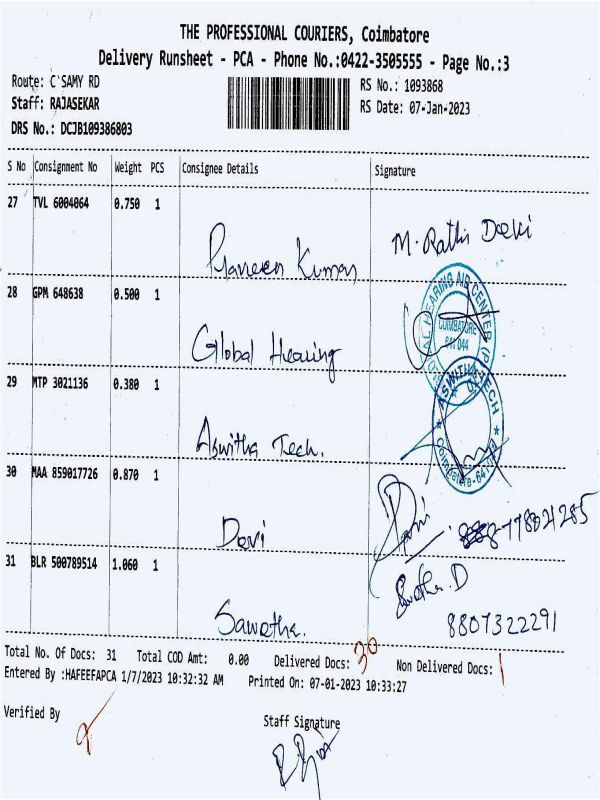 THE PROFESSIONAL COURIERS, Coimbatore
Delivery Runsheet - PCA - Phone No.:0422-3505555 - Page No.:3
Route: C'SAMY RD
RS No.: 1093868
Staff: RAJASEKAR
RS Date: 07-Jan-2023
DRS No.: DCJB109386803
S No Consignment No Weight PCS Consignee Details Signature
27 TVL 6004064 0.750 1
Praveen Kumar M. Rathi Devi
28 GPM 648638 0.500 1
Global Hearing
HEARING AID CENTER (P)
COIMBATORE
641 044
29 MTP 3021136 0.380 1
Aswitha Tech.
ASWITHA TECH
Coimbatore-641
30 MAA 859017726 0.870 1
Devi
31 BLR 500789514 1.060 1
Swetha. D
Sawetha.
8807322291
Total No. Of Docs: 31 Total COD Amt: 0.00 Delivered Docs: 30 Non Delivered Docs: 1
Entered By :HAFEEFAPCA 1/7/2023 10:32:32 AM Printed On: 07-01-2023 10:33:27
Verified By
Staff Signature